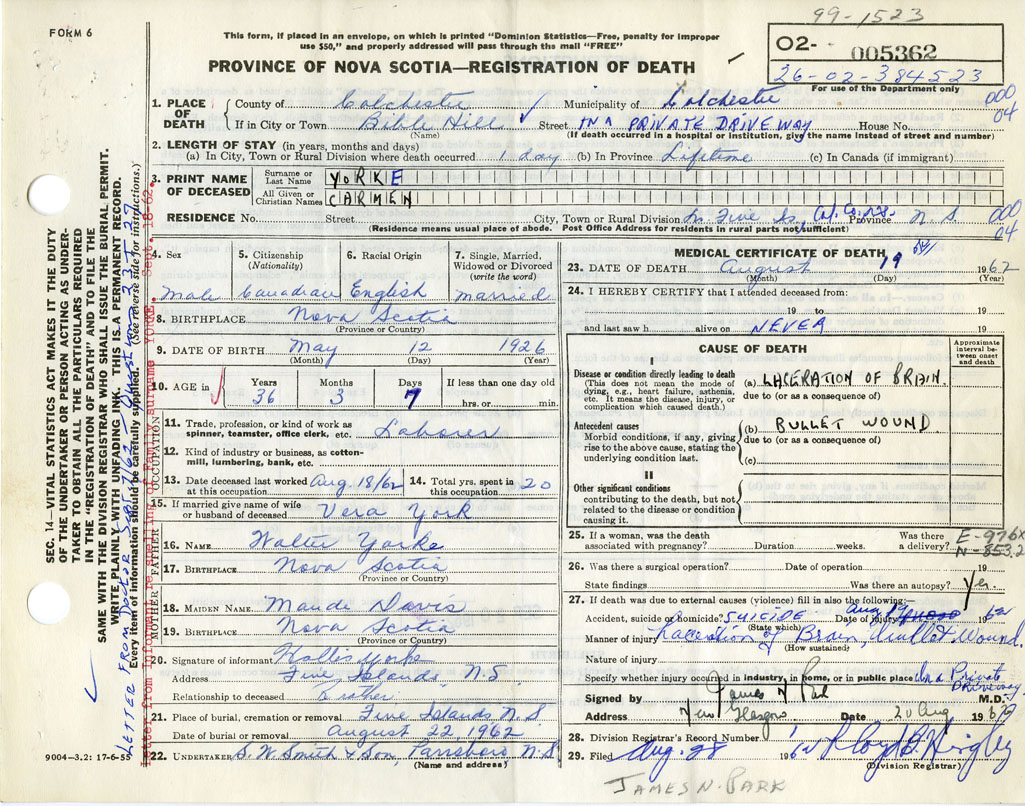 99-1523
FORM 6
This form, if placed in an envelope, on which is printed "Dominion Statistics—Free, penalty for improper
use $50," and properly addressed will pass through the mail "FREE"
O2- 005362
26-02-384523
For use of the Department only
PROVINCE OF NOVA SCOTIA—REGISTRATION OF DEATH
1. PLACE OF DEATH County of Colchester Municipality of Colchester 000
If in City or Town Bible Hill Street IN A PRIVATE DRIVEWAY House No. 04
(Name) (If death occurred in a hospital or institution, give the name instead of street and number)
2. LENGTH OF STAY (in years, months and days)
(a) In City, Town or Rural Division where death occurred 1 day (b) In Province Lifetime (c) In Canada (if immigrant)
3. PRINT NAME OF DECEASED Surname or Last Name YORKE
All Given or Christian Names CARMEN
RESIDENCE No. Street City, Town or Rural Division Five Is, Col. Co. N.S. Province N.S. 000
(Residence means usual place of abode. Post Office Address for residents in rural parts not sufficient) 04
4. Sex 5. Citizenship (Nationality) 6. Racial Origin 7. Single, Married, Widowed or Divorced (write the word)
Male Canadian English Married
8. BIRTHPLACE Nova Scotia
(Province or Country)
9. DATE OF BIRTH May 12 1926
(Month) (Day) (Year)
10. AGE in Years Months Days If less than one day old
36 3 7 hrs. or min.
OCCUPATION
11. Trade, profession, or kind of work as spinner, teamster, office clerk, etc. Laborer
12. Kind of industry or business, as cotton-mill, lumbering, bank, etc.
13. Date deceased last worked at this occupation Aug. 18/62 14. Total yrs. spent in this occupation 20
15. If married give name of wife or husband of deceased Vera York
FATHER
16. NAME Walter Yorke
17. BIRTHPLACE Nova Scotia
(Province or Country)
MOTHER
18. MAIDEN NAME Maude Davis
19. BIRTHPLACE Nova Scotia
(Province or Country)
20. Signature of informant Wallis Yorke
Address Five Islands, N.S.
Relationship to deceased Brother
21. Place of burial, cremation or removal Five Islands N.S
Date of burial or removal August 22 1962
22. UNDERTAKER S. W. Smith & Son, Parrsboro, N.S.
(Name and address)
9004—3.2: 17-6-55
MEDICAL CERTIFICATE OF DEATH
23. DATE OF DEATH August 19 1962
(Month) (Day) (Year)
24. I HEREBY CERTIFY that I attended deceased from:
19 to 19
and last saw h alive on NEVER 19
CAUSE OF DEATH
Approximate interval between onset and death
I
Disease or condition directly leading to death
(This does not mean the mode of dying, e.g., heart failure, asthenia, etc. It means the disease, injury, or complication which caused death.)
(a) LACERATION OF BRAIN
due to (or as a consequence of)
Antecedent causes
Morbid conditions, if any, giving rise to the above cause, stating the underlying condition last.
(b) BULLET WOUND
due to (or as a consequence of)
(c)
II
Other significant conditions
contributing to the death, but not related to the disease or condition causing it.
25. If a woman, was the death associated with pregnancy? Duration weeks. Was there a delivery?
E-976X
N-853.2
26. Was there a surgical operation? Date of operation 19
State findings Was there an autopsy? Yes.
27. If death was due to external causes (violence) fill in also the following:—
Accident, suicide or homicide? SUICIDE Date of injury Aug 19 62
(State which)
Manner of injury Laceration of Brain, bullet wound.
(How sustained)
Nature of injury
Specify whether injury occurred in industry, in home, or in public place In a Private DRIVEWAY
Signed by James N Park M.D.
Address New Glasgow Date 20 Aug 1962
28. Division Registrar's Record Number 1
29. Filed Aug. 28 196
(Division Registrar)
JAMES N. PARK
SEC. 14—VITAL STATISTICS ACT MAKES IT THE DUTY
OF THE UNDERTAKER OR PERSON ACTING AS UNDER-
TAKER TO OBTAIN ALL THE PARTICULARS REQUIRED
IN THE "REGISTRATION OF DEATH" AND TO FILE THE
SAME WITH THE DIVISION REGISTRAR WHO SHALL ISSUE THE BURIAL PERMIT.
WRITE PLAINLY WITH UNFADING INK. THIS IS A PERMANENT RECORD.
Every item of information should be carefully supplied. (See reverse side for instructions.)
LETTER FROM DOCTOR
Letter from Informant re spelling of family surname YORKE. Sept. 18-62.